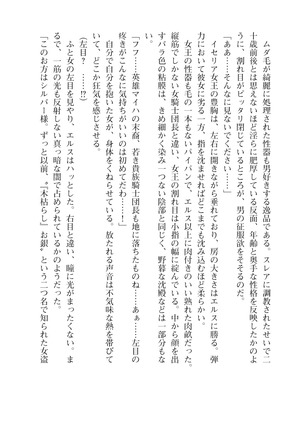 ムダ毛が綺麗に処理された性器も男好きする逸品である。スレアに調教されたせいで二
十歳前後とは思えないほど淫らに肥厚している反面、年齢と奥手な性格を反映したかのよ
うに、割れ目がピッタリ閉じているところが、男の征服欲をそそるのだ。
「ああ……そんなに見ないでください……」
イセリア女王の豊胸は、左右に開きながら垂れており、房の大きさはエルスに勝る。弾
力において彼女に劣る一方、指を沈ませればどこまでも沈み込むほど柔らかい。
女王の性器も毛の一本もないパイパンで、エルス以上に肉付きのいい熟れた肉畝だ。
縦筋でしかない女騎士団長と違い、女王の割れ目は小指の幅に綻んでいる。中から顔を出
すバラ色の粘膜は、きめ細かく染み一つない陰部と同じく、野暮な沈殿などは一部分もな
「フフ、英雄マイハの末裔、若き貴族騎士団長も地に落ちたものね……あぁ……左目の
疼きがこんなに気持ちがいいのは初めてだわ……！」
自分で自分を抱いた女が、身体をくねらせている。放たれる声音は不気味な熱を帯びて
いて、どこか狂気を感じさせる。
（左目？……）
ふと女の左目を見やり、エルスはハッとした。右目と違い、瞳に光がまったくない。ま
るで、一筋の光も反射しない真っ暗な闇で占められているかのようだった。
「このお方はシルバー様。ずっと以前、『木枯らし』お銀〟という二つ名で知られた女盗